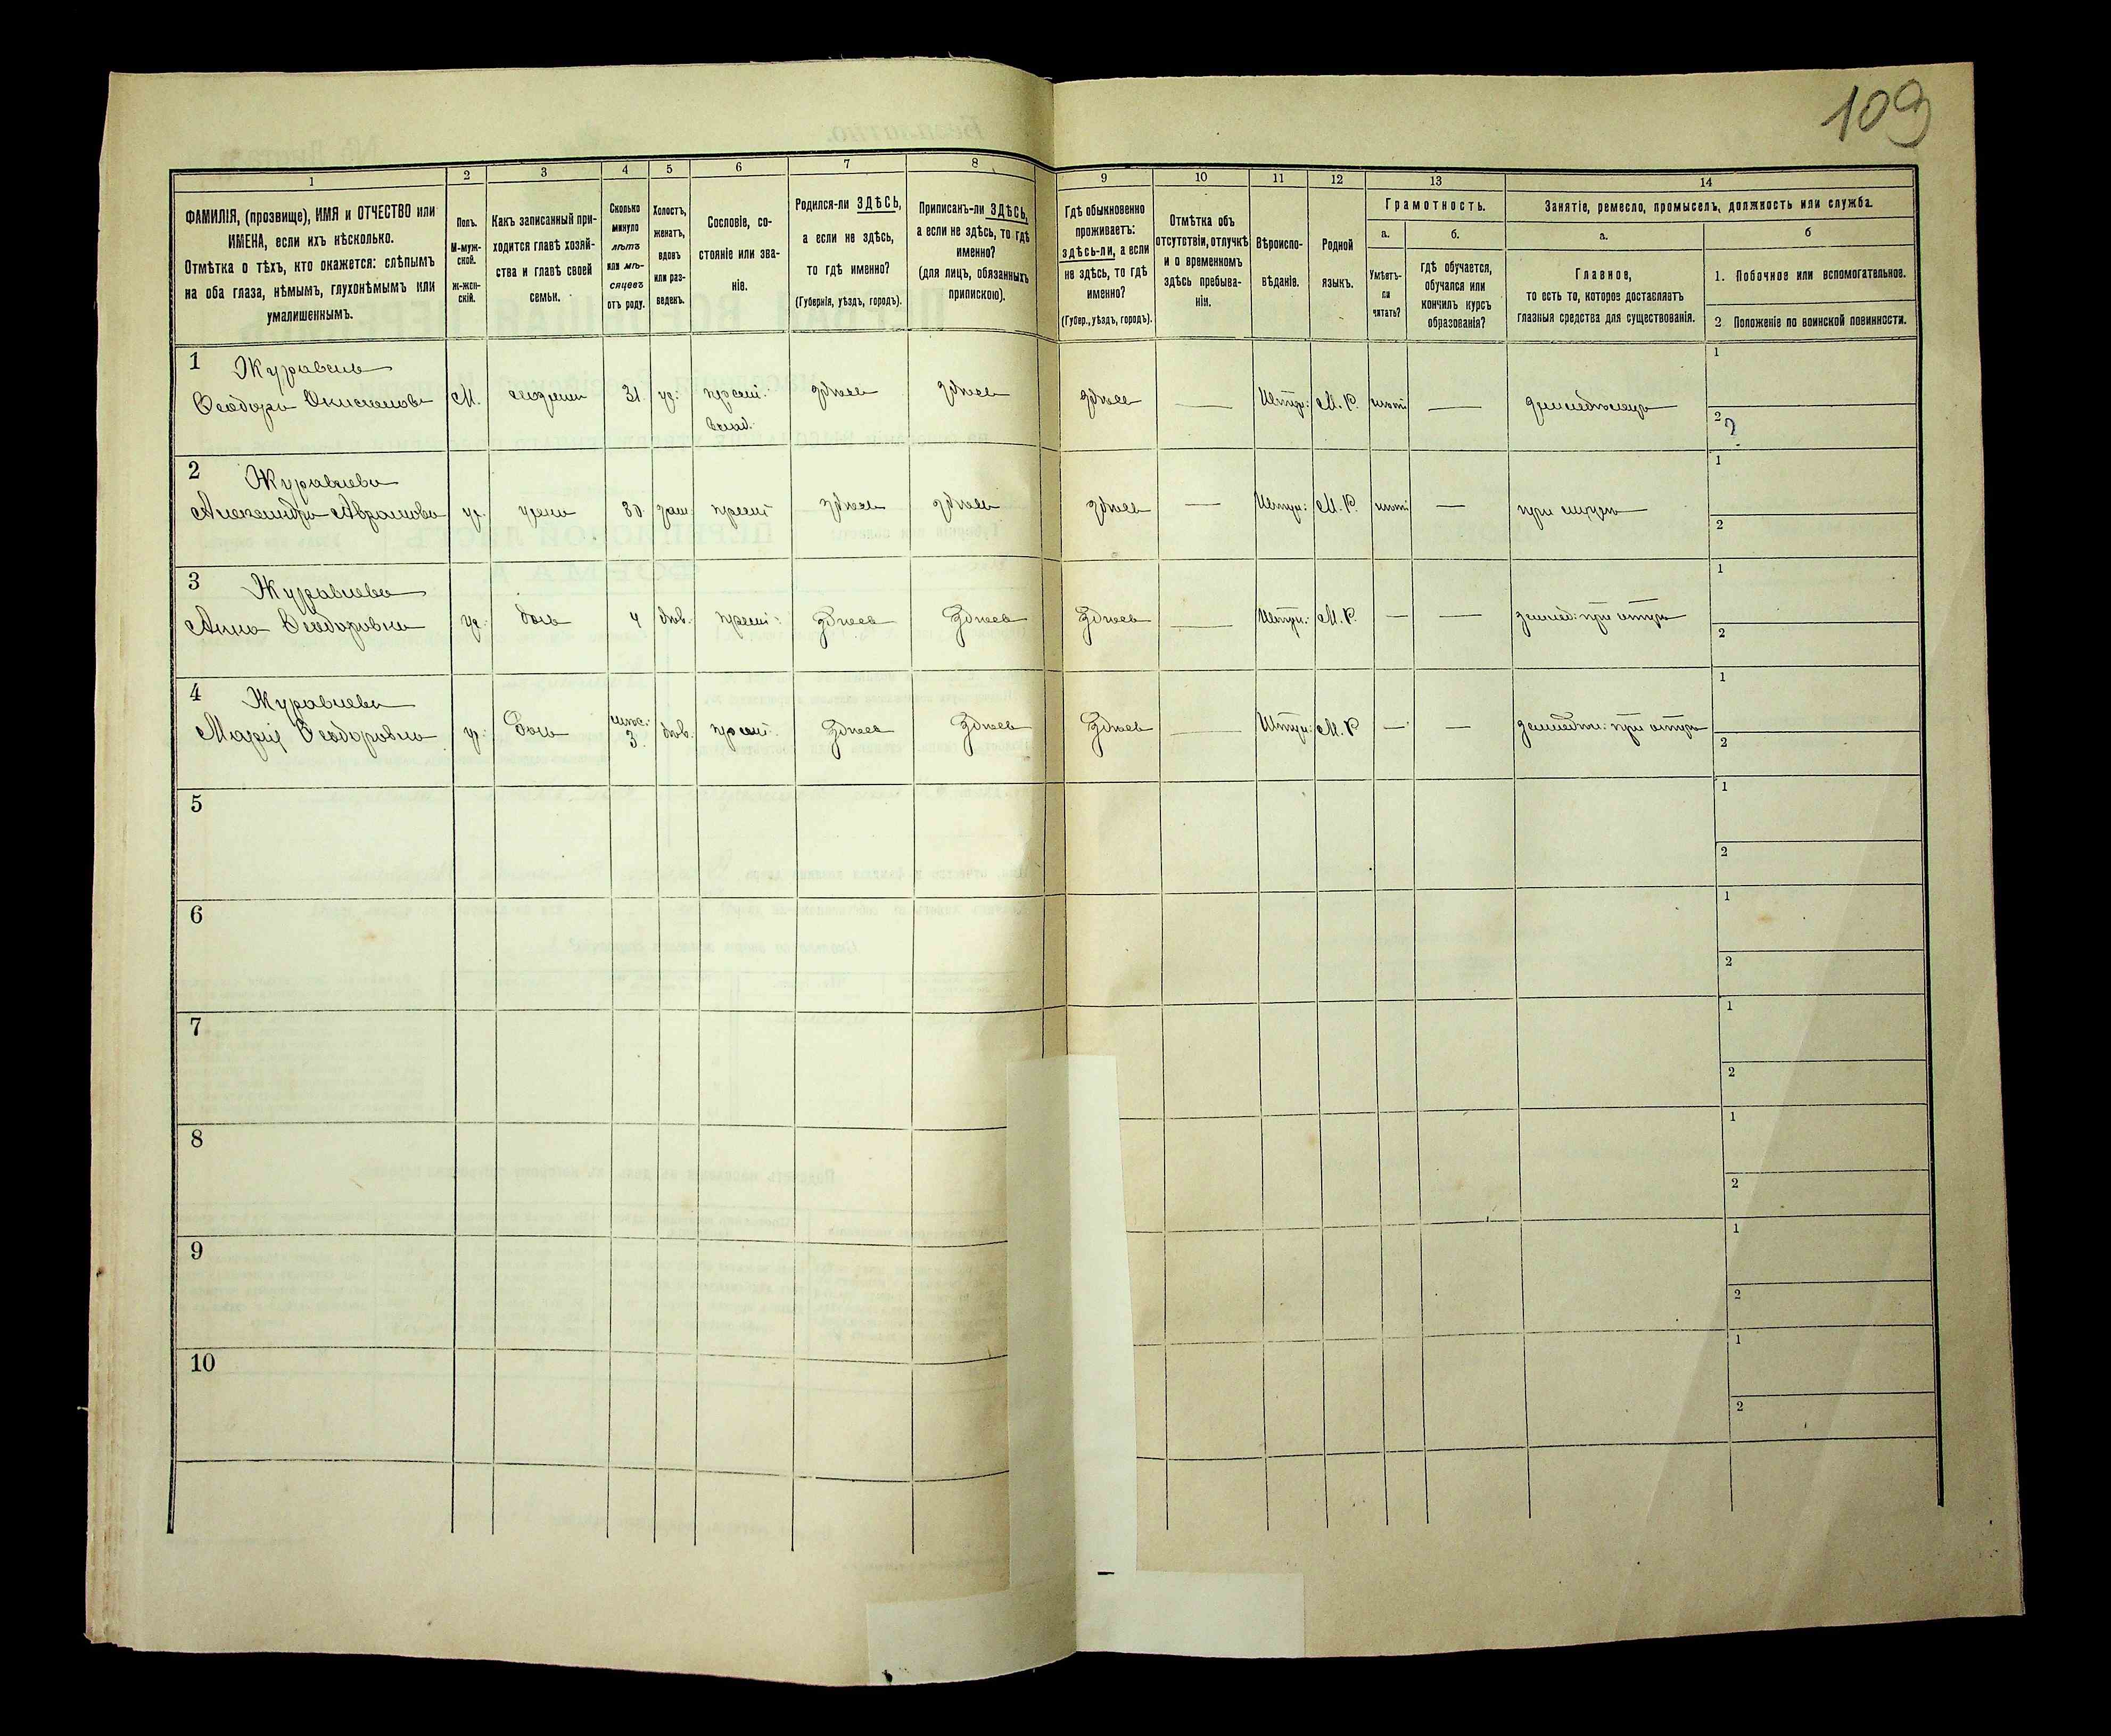 109
1
2
3
4
5
6
7
8
9
10
11
12
13
14
ФАМИЛІЯ, (прозвище), ИМЯ и ОТЧЕСТВО или
ИМЕНА, если ихъ нѣсколько.
Отмѣтка о тѣхъ, кто окажется: слѣпымъ
на оба глаза, нѣмымъ, глухонѣмымъ или
умалишеннымъ.
Полъ.
М-муж-
ской.
Ж-жен-
скій.
Какъ записанный при-
ходится главѣ хозяй-
ства и главѣ своей
семьи.
Сколько
минуло
лѣтъ
или мѣ-
сяцевъ
отъ роду.
Холостъ,
женатъ,
вдовъ
или раз-
веденъ.
Сословіе, со-
стояніе или зва-
ніе.
Родился-ли ЗДѢСЬ,
а если не здѣсь,
то гдѣ именно?
(Губернія, уѣздъ, городъ).
Приписанъ-ли ЗДѢСЬ,
а если не здѣсь, то гдѣ
именно?
(для лицъ, обязанныхъ
припискою).
Гдѣ обыкновенно
проживаетъ:
здѣсь-ли, а если
не здѣсь, то гдѣ
именно?
(Губер., уѣздъ, городъ).
Отмѣтка объ
отсутствіи, отлучкѣ
и о временномъ
здѣсь пребыва-
ніи.
Вѣроиспо-
вѣданіе.
Родной
языкъ.
Грамотность.
а.
Умѣетъ-
ли
читать?
б.
гдѣ обучается,
обучался или
кончилъ курсъ
образованія?
Занятіе, ремесло, промыселъ, должность или служба.
а.
Главное,
то есть то, которое доставляетъ
главныя средства для существованія.
б
1. Побочное или вспомогательное.
2 Положеніе по воинской повинности.
1 Журавель
Ѳеодоръ М. 31 здѣсь здѣсь здѣсь — М. Р. — земледѣлецъ
1
2
2 Журавлева
Александра Аврамова ж. жена 30 зам. здѣсь здѣсь здѣсь — М. Р. — при мужѣ
1
2
3 Журавлева
Анна Ѳеодоровна ж. дочь 4 дѣв. здѣсь здѣсь здѣсь — М. Р. — — землед: при отцѣ
1
2
4 Журавлева
Марія Ѳеодоровна ж. дочь 3 дѣв. здѣсь здѣсь здѣсь — М. Р — — при отцѣ
1
2
5
1
2
6
1
2
7
1
2
8
1
2
9
1
2
10
1
2